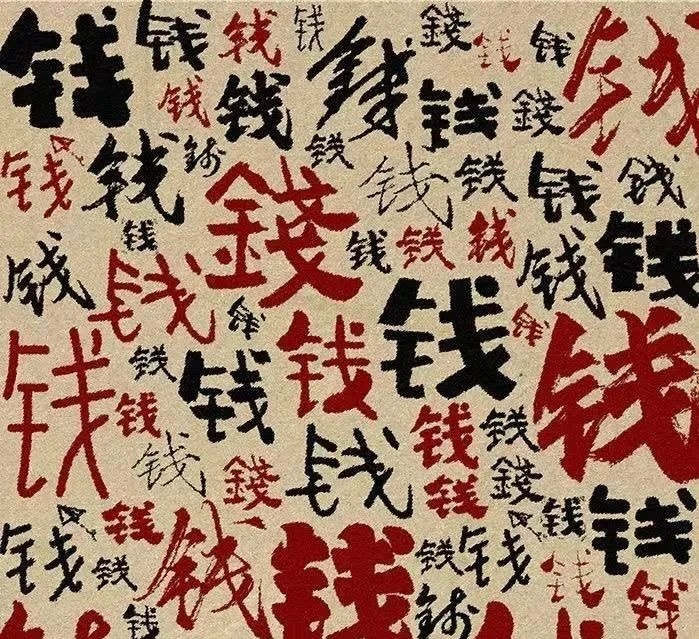 钱 钱 钱 钱 钱 錢 钱 钱 钱
钱 钱 钱 钱 錢
钱 钱 钱 錢 钱 钱 钱 钱
钱 钱 钱 钱 钱 钱
钱 钱 钱 钱 钱 钱
钱 钱 钱 钱
钱 钱 錢 钱 钱 钱 钱 錢
钱 钱 钱 钱 钱 钱 钱 钱
钱 钱 钱 钱